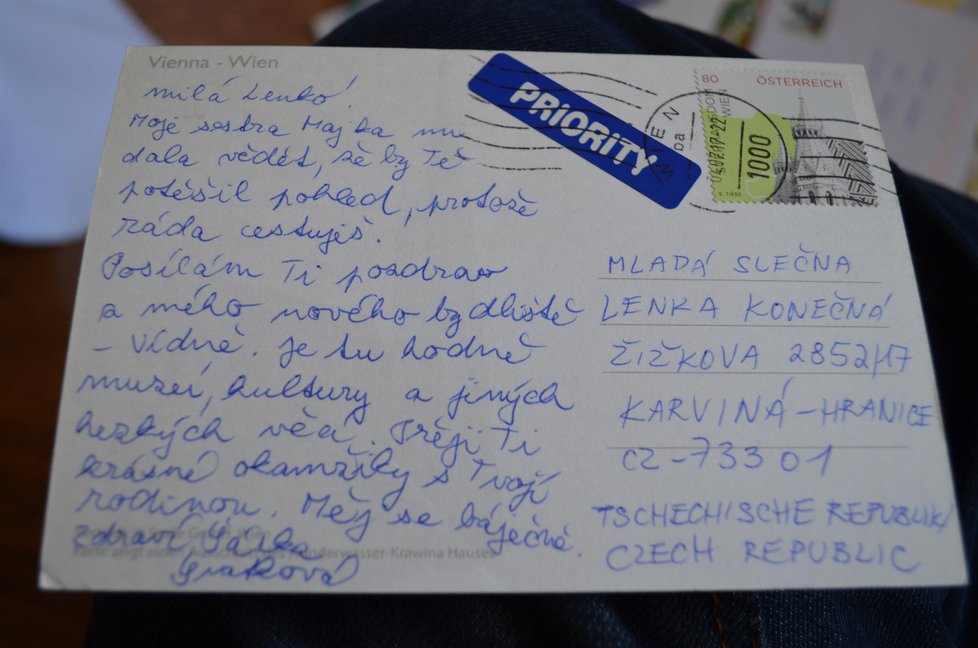 Vienna - Wien
milá Lenko!
Moje sestra Majka mi
dala vědět, že by Tě
potěšil pohled, protože
ráda cestuješ.
Posílám Ti pozdrav
z mého nového bydliště
- Vídně. Je tu hodně
muzeí, kultury a jiných
hezkých věcí. Přeji Ti
krásné okamžiky s Tvojí
rodinou. Měj se báječně.
zdraví Šárka
Hundertwasser-Krawina Hauses
PRIORITY
80 ÖSTERREICH
1000
WIEN
MLADÁ SLEČNA
LENKA KONEČNÁ
ŽIŽKOVA 2852/17
KARVINÁ - HRANICE
CZ-733 01
TSCHECHISCHE REPUBLIK/
CZECH REPUBLIC